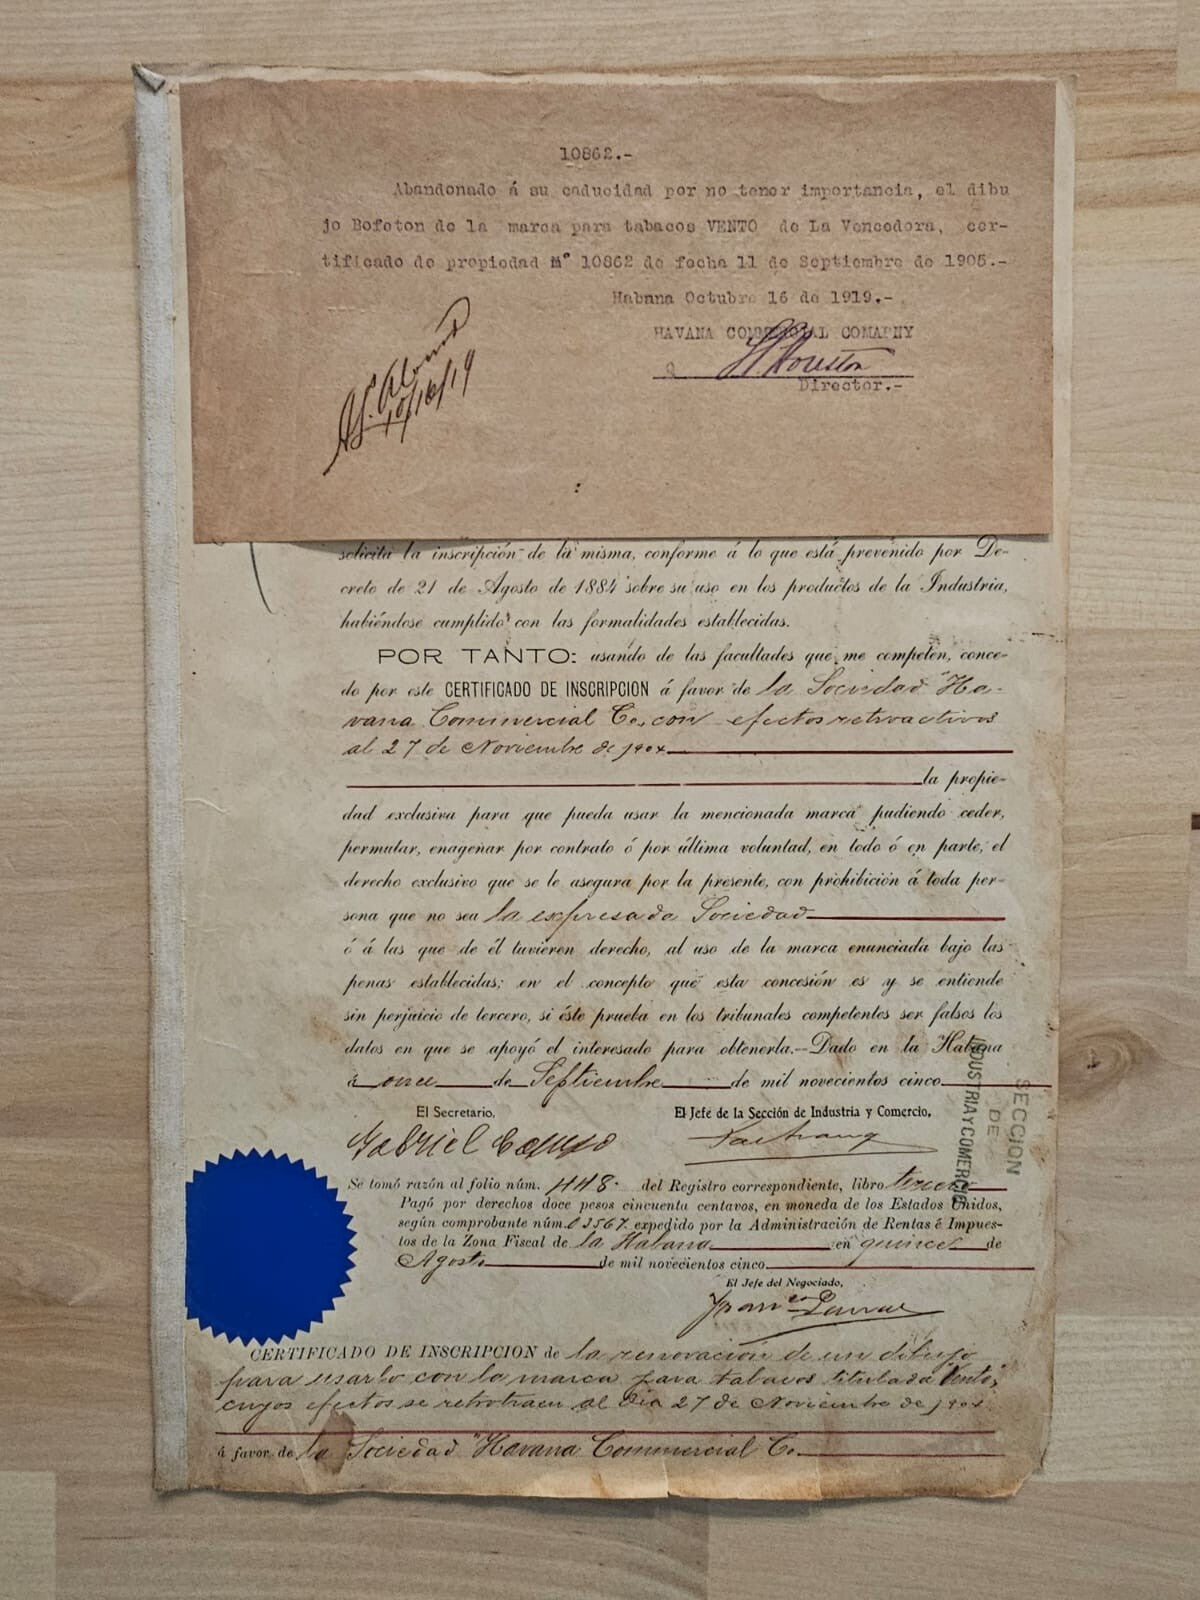 10862.-
Abandonado á su caducidad por no tener importancia, el dibu
jo Bofeton de la marca para tabacos VENTO de La Vencedora, cer-
tificado de propiedad Nº 10862 de fecha 11 de Septiembre de 1905.-
Habana Octubre 16 de 1919.-
HAVANA COMMERCIAL COMAPNY
Director.-
10/16/19
solicita la inscripción de la misma, conforme á lo que está prevenido por De-
creto de 21 de Agosto de 1884 sobre su uso en los productos de la Industria,
habiéndose cumplido con las formalidades establecidas.
POR TANTO: usando de las facultades que me competen, conce-
do por este CERTIFICADO DE INSCRIPCION á favor de la Sociedad "Ha-
vana Commercial Co, con efectos retroactivos
al 27 de Noviembre de 1904
la propie-
dad exclusiva para que pueda usar la mencionada marca pudiendo ceder,
permutar, enagenar por contrato ó por última voluntad, en todo ó en parte, el
derecho exclusivo que se le asegura por la presente, con prohibición á toda per-
sona que no sea la expresada Sociedad
ó á las que de él tuvieren derecho, al uso de la marca enunciada bajo las
penas establecidas; en el concepto que esta concesión es y se entiende
sin perjuicio de tercero, si éste prueba en los tribunales competentes ser falsos los
datos en que se apoyó el interesado para obtenerla.--Dado en la Habana
á once de Septiembre de mil novecientos cinco
SECCION
DE
INDUSTRIA Y COMERCIO
El Secretario,
El Jefe de la Sección de Industria y Comercio,
Gabriel Camps
Se tomó razón al folio núm. 448. del Registro correspondiente, libro tercero
Pagó por derechos doce pesos cincuenta centavos, en moneda de los Estados Unidos,
según comprobante núm. 03567 expedido por la Administración de Rentas é Impues-
tos de la Zona Fiscal de la Habana en quince de
Agosto de mil novecientos cinco
El Jefe del Negociado,
CERTIFICADO DE INSCRIPCION de la renovación de un dibujo
para usarlo con la marca para tabacos titulada Vento,
cuyos efectos se retrotraen al día 27 de Noviembre de 1904
á favor de la Sociedad "Havana Commercial Co.